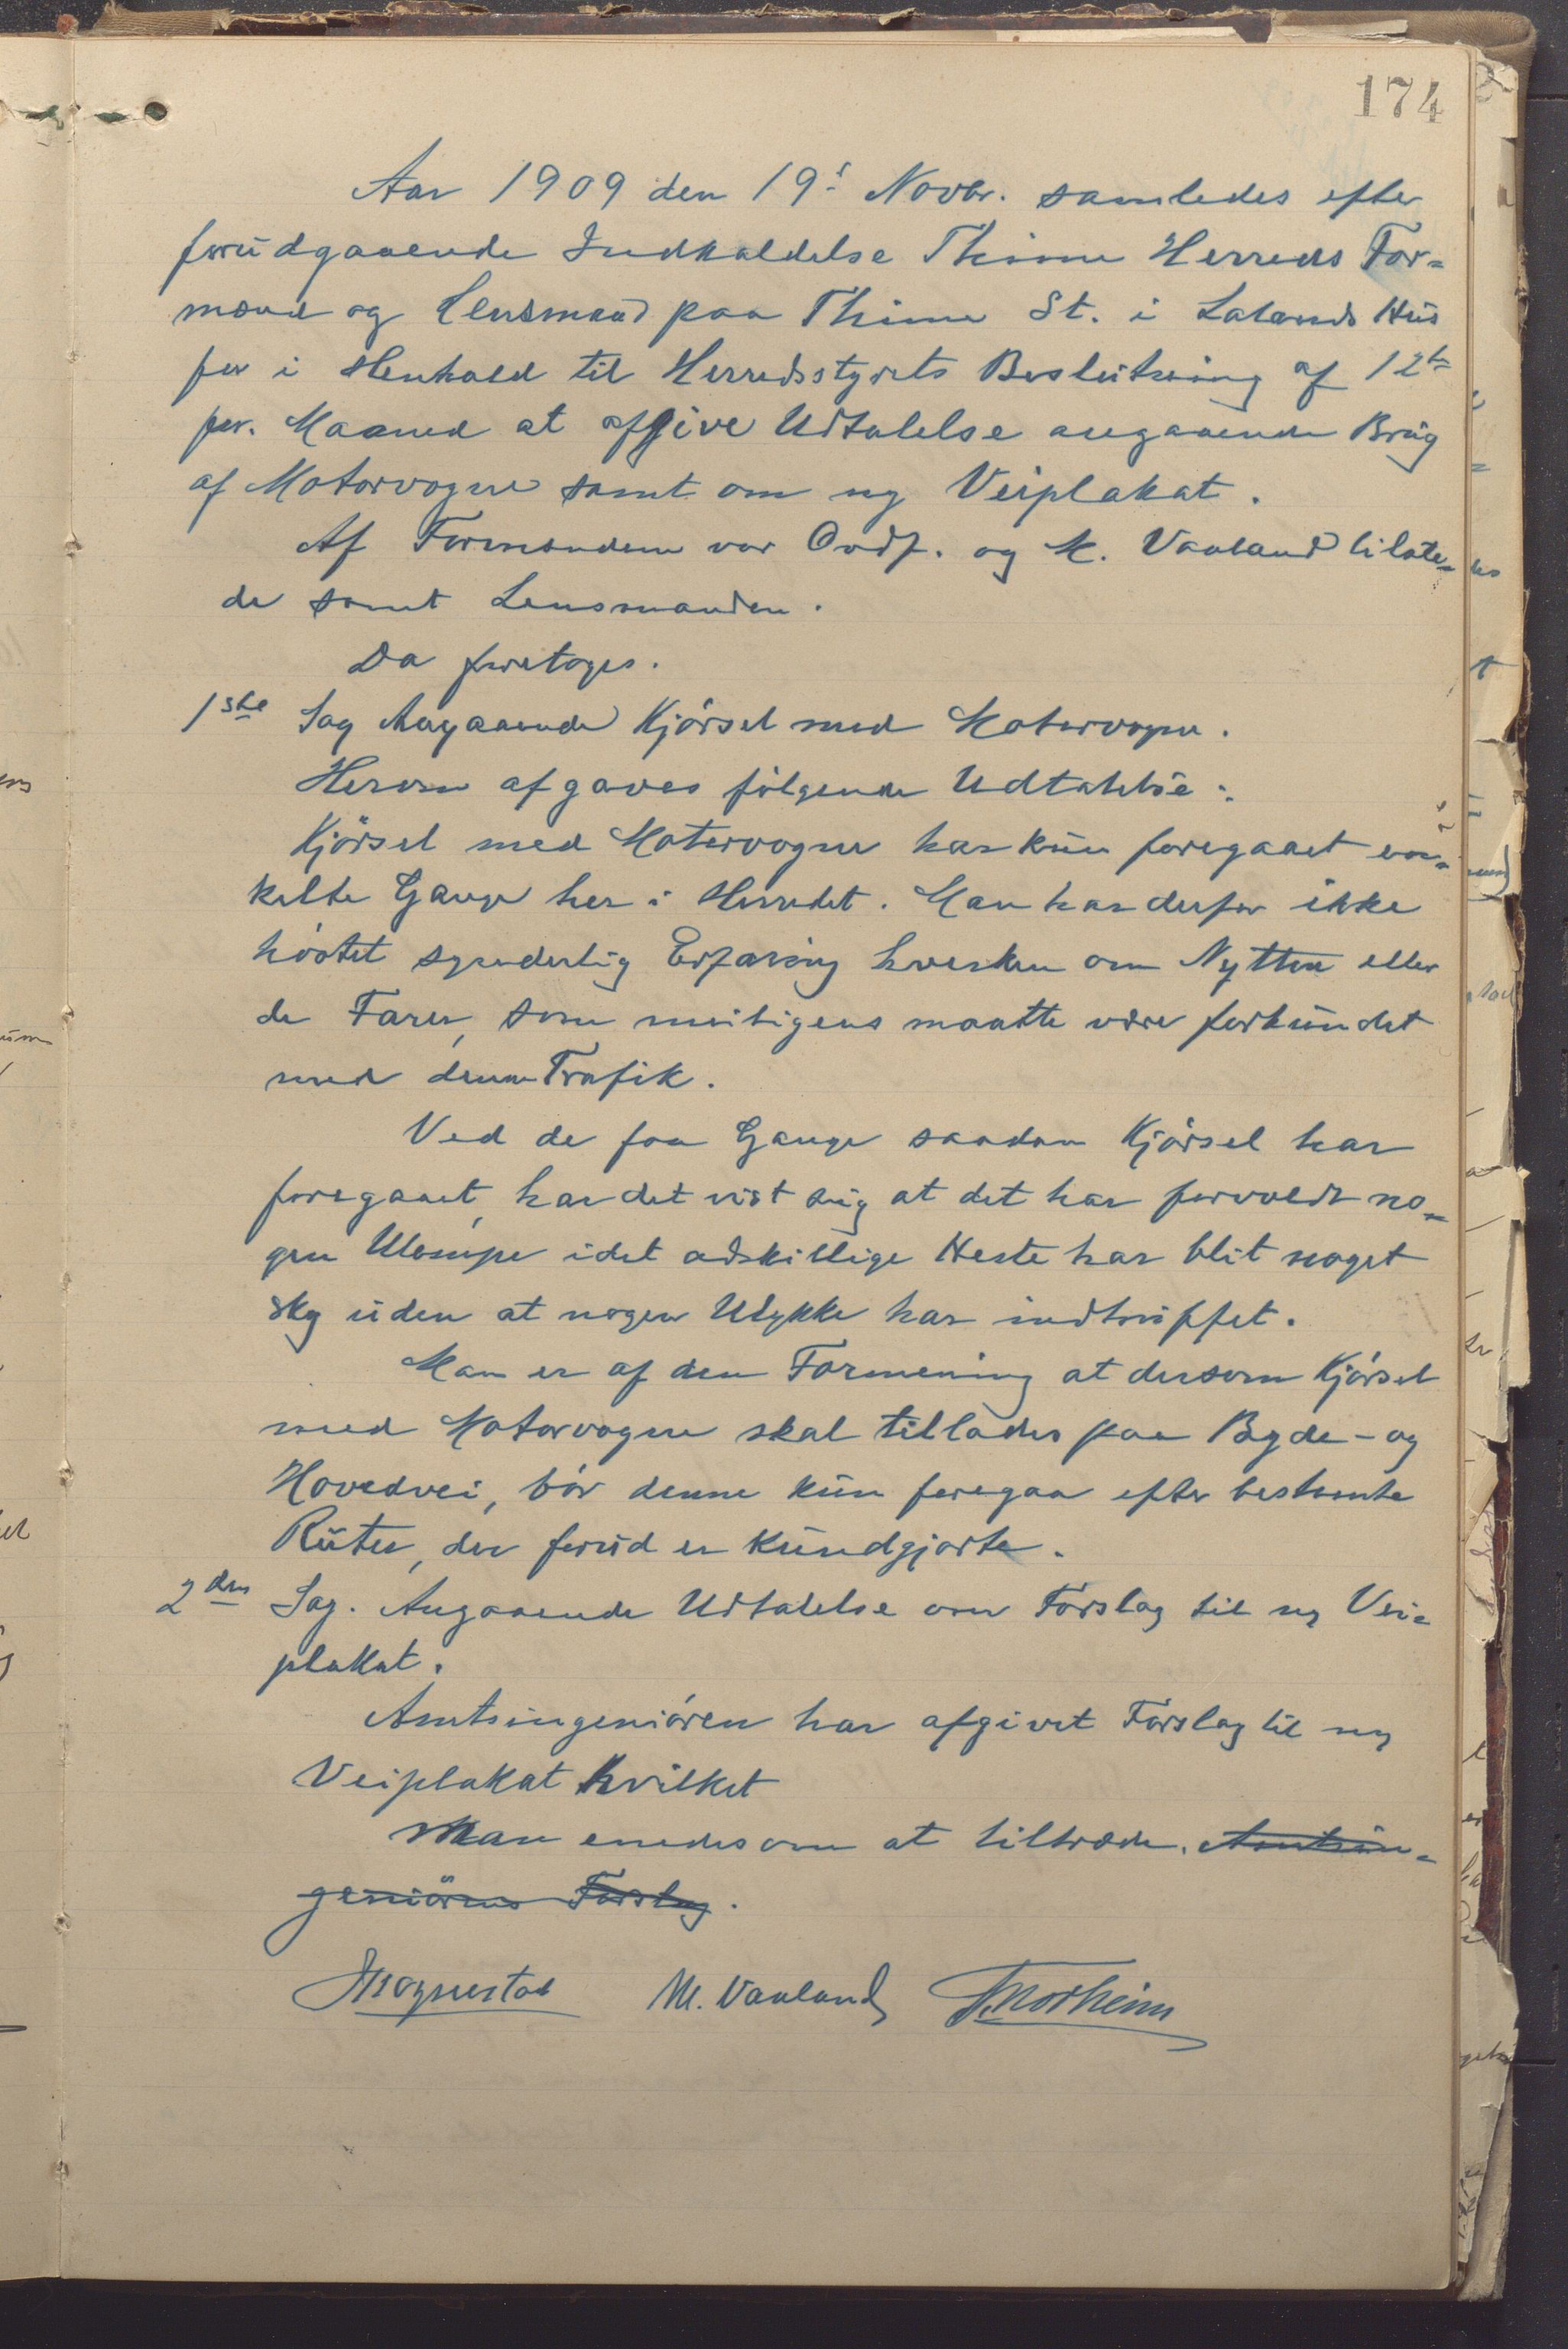 174
Aar 1909 den 19s Novbr. samledes efter
forudgaaende Indkaldelse Thime Herreds For-
mænd og Lensmand paa Thime St. i Lalands Hus
for i Henhold til Herredsstyrets Beslutning af 12te
ps. Maaned at afgive Udtalelse angaaende Brug
af Motorvogne samt om ny Veiplakat.
Af Formændene var Ordf. og M. Vauland tilste-
de samt Lensmanden.
Da foretoges.
1ste Sag Angaaende Kjörsel med Motorvogne.
Herom afgaves fölgende Udtalelse:
Kjörsel med Motorvogne har kun foregaaet en-
kelte Gange her i Herredet. Man har derfor ikke
höstet synderlig Erfaring hverken om Nytten eller
de Farer, som muligens maatte være forbundet
med denne Trafik.
Ved de faa Gange saadan Kjörsel har
foregaaet, har det vist sig at det har forvoldt no-
gen Ulempe idet adskillige Heste har blit noget
sky uden at nogen Ulykke har indtruffet.
Man er af den Formening at dersom Kjörsel
med Motorvogne skal tillades paa Bygde- og
Hovedvei, bör denne kun foregaa efter bestemte
Ruter, der forud er kundgjorte.
2den Sag. Angaaende Udtalelse om Forslag til ny Vei-
plakat.
Amtsingeniören har afgivet Forslag til ny
Veiplakat hvilket
Man enedes om at tiltræde. Amtsin-
geniörens Forslag.
M. Vauland